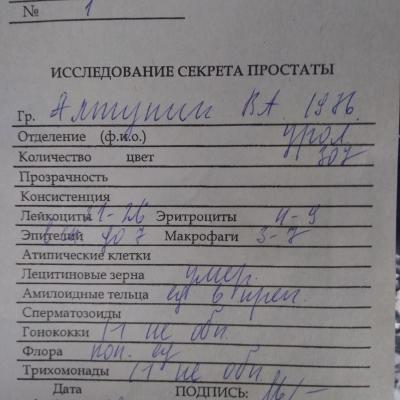 № 1
ИССЛЕДОВАНИЕ СЕКРЕТА ПРОСТАТЫ
Гр. В.А. 19
Отделение (ф.и.о.) урол
Количество цвет 307
Прозрачность
Консистенция
Лейкоциты 21-26 Эритроциты 4-9
Эпителий до 7 Макрофаги 3-7
Атипические клетки
Лецитиновые зерна умер.
Амилоидные тельца ед в преп.
Сперматозоиды
Гонококки (-) не обн.
Флора коп. ед
Трихомонады (-) не обн.
Дата ПОДПИСЬ: